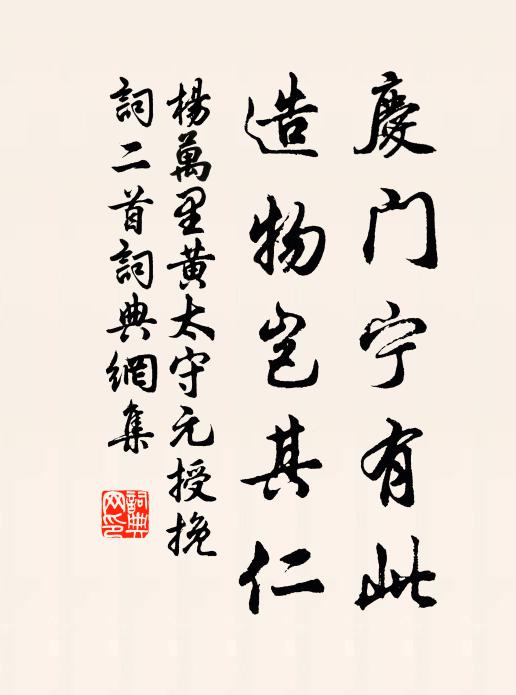 慶门宁有此
造物岂其仁
楊萬里黄太守元授挽
詞二首詞典網集
詞典网印